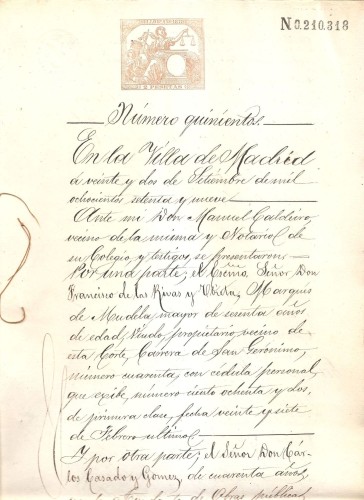 N 0.210.318
2 PESETAS
Número quinientos.
En la Villa de Madrid
á veinte y dos de Setiembre de mil
ochocientos setenta y nueve
Ante mi Don Manuel Caldeiro,
vecino de la misma y Notario de
su Colegio, y testigos, se presentaron
Por una parte, el Excmo. Señor Don
Francisco de las Rivas y Ubieta, Marqués
de Mudela, mayor de sesenta años
de edad, Viudo, propietario, vecino de
esta Corte, Carrera de San Gerónimo,
número cuarenta, con cédula personal,
que exibe, número ciento ochenta y dos,
de primera clase, fecha veinte y siete
de Febrero último
Y por otra parte, el Señor Don Cár-
los Casado y Gomez, de cuarenta años,
de Obras públicas